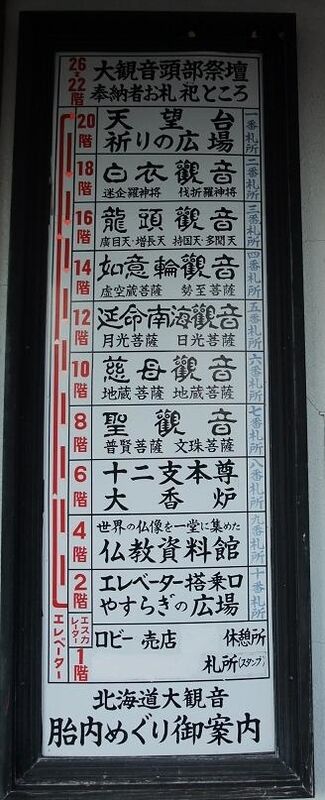 26~22階
大観音頭部祭壇
奉納者お札祀ところ
20階
天望台
祈りの広場
一番札所
18階
白衣觀音
迷企羅神将 伐折羅神将
二番札所
16階
龍頭觀音
廣目天・増長天 持国天・多聞天
三番札所
14階
如意輪觀音
虚空蔵菩薩 勢至菩薩
四番札所
12階
延命南海觀音
月光菩薩 日光菩薩
五番札所
10階
慈母觀音
地蔵菩薩 地蔵菩薩
六番札所
8階
聖觀音
普賢菩薩 文珠菩薩
七番札所
6階
十二支本尊
大香炉
八番札所
4階
世界の仏像を一堂に集めた
仏教資料館
九番札所
2階
エレベーター搭乗口
やすらぎの広場
十番札所
エレベーター
エスカレーター
1階
ロビー 売店 休憩所
札所(スタンプ)
北海道大観音
胎内めぐり御案内